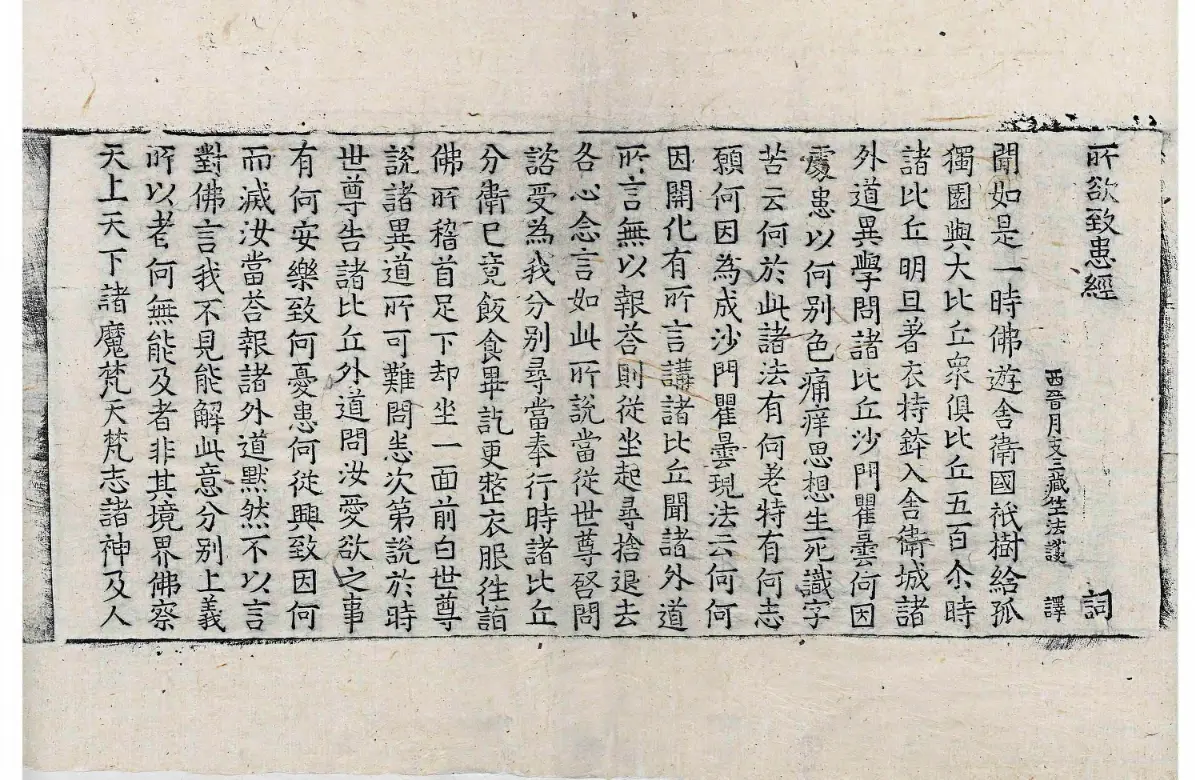 所欲致患經 詞
西晉月支三藏竺法護 譯
聞如是一時佛遊舍衛國祇樹給孤
獨園與大比丘衆俱比丘五百尒時
諸比丘明旦著衣持鉢入舍衛城諸
外道異學問諸比丘沙門瞿曇何因
處患以何別色痛痒思想生死識字
苦云何於此諸法有何老特有何志
願何因為成沙門瞿曇現法云何何
因開化有所言講諸比丘聞諸外道
所言無以報荅則從坐起尋捨退去
各心念言如此所說當從世尊啓問
諮受為我分別尋當奉行時諸比丘
分衛已竟飯食畢訖更整衣服往詣
佛所稽首足下却坐一面前白世尊
說諸異道所可難問悉次第說於時
世尊告諸比丘外道問汝愛欲之事
有何安樂致何憂患何從興致因何
而滅汝當荅報諸外道默然不以言
對佛言我不見能解此意分別上義
所以者何無能及者非其境界佛察
天上天下諸魔梵天梵志諸神及人